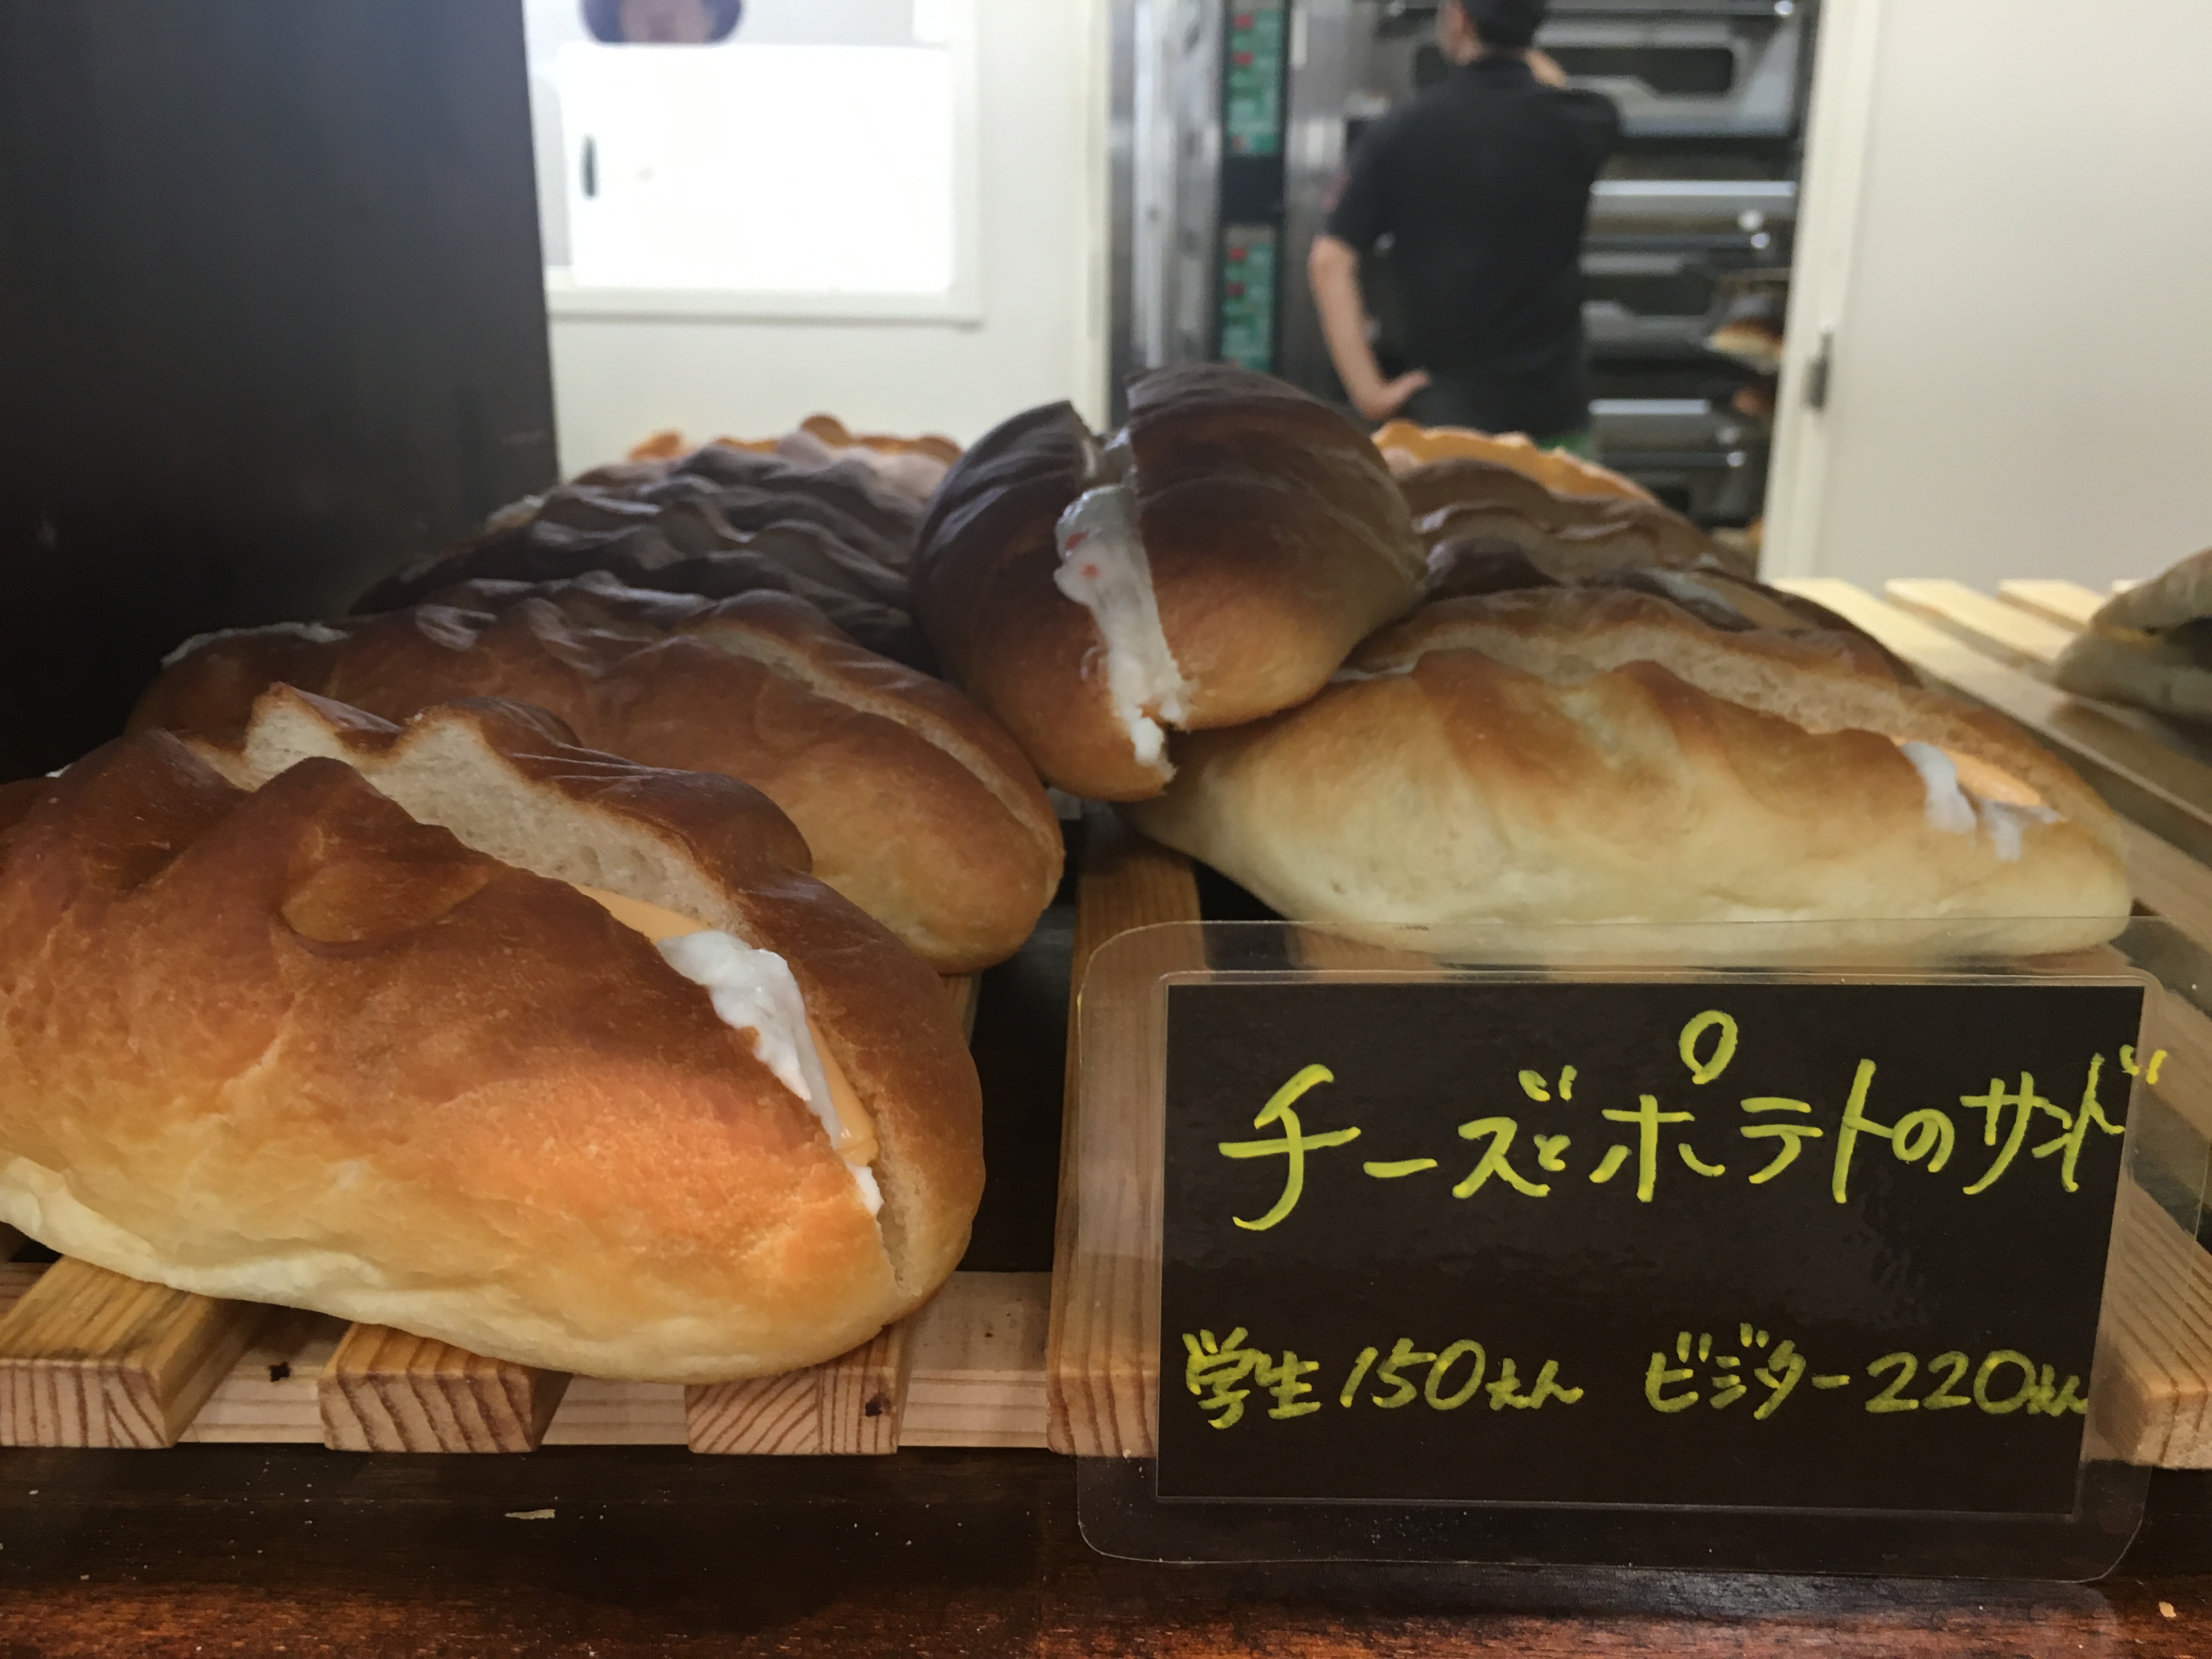 チーズとポテトのサンド
学生150えん ビジター220えん